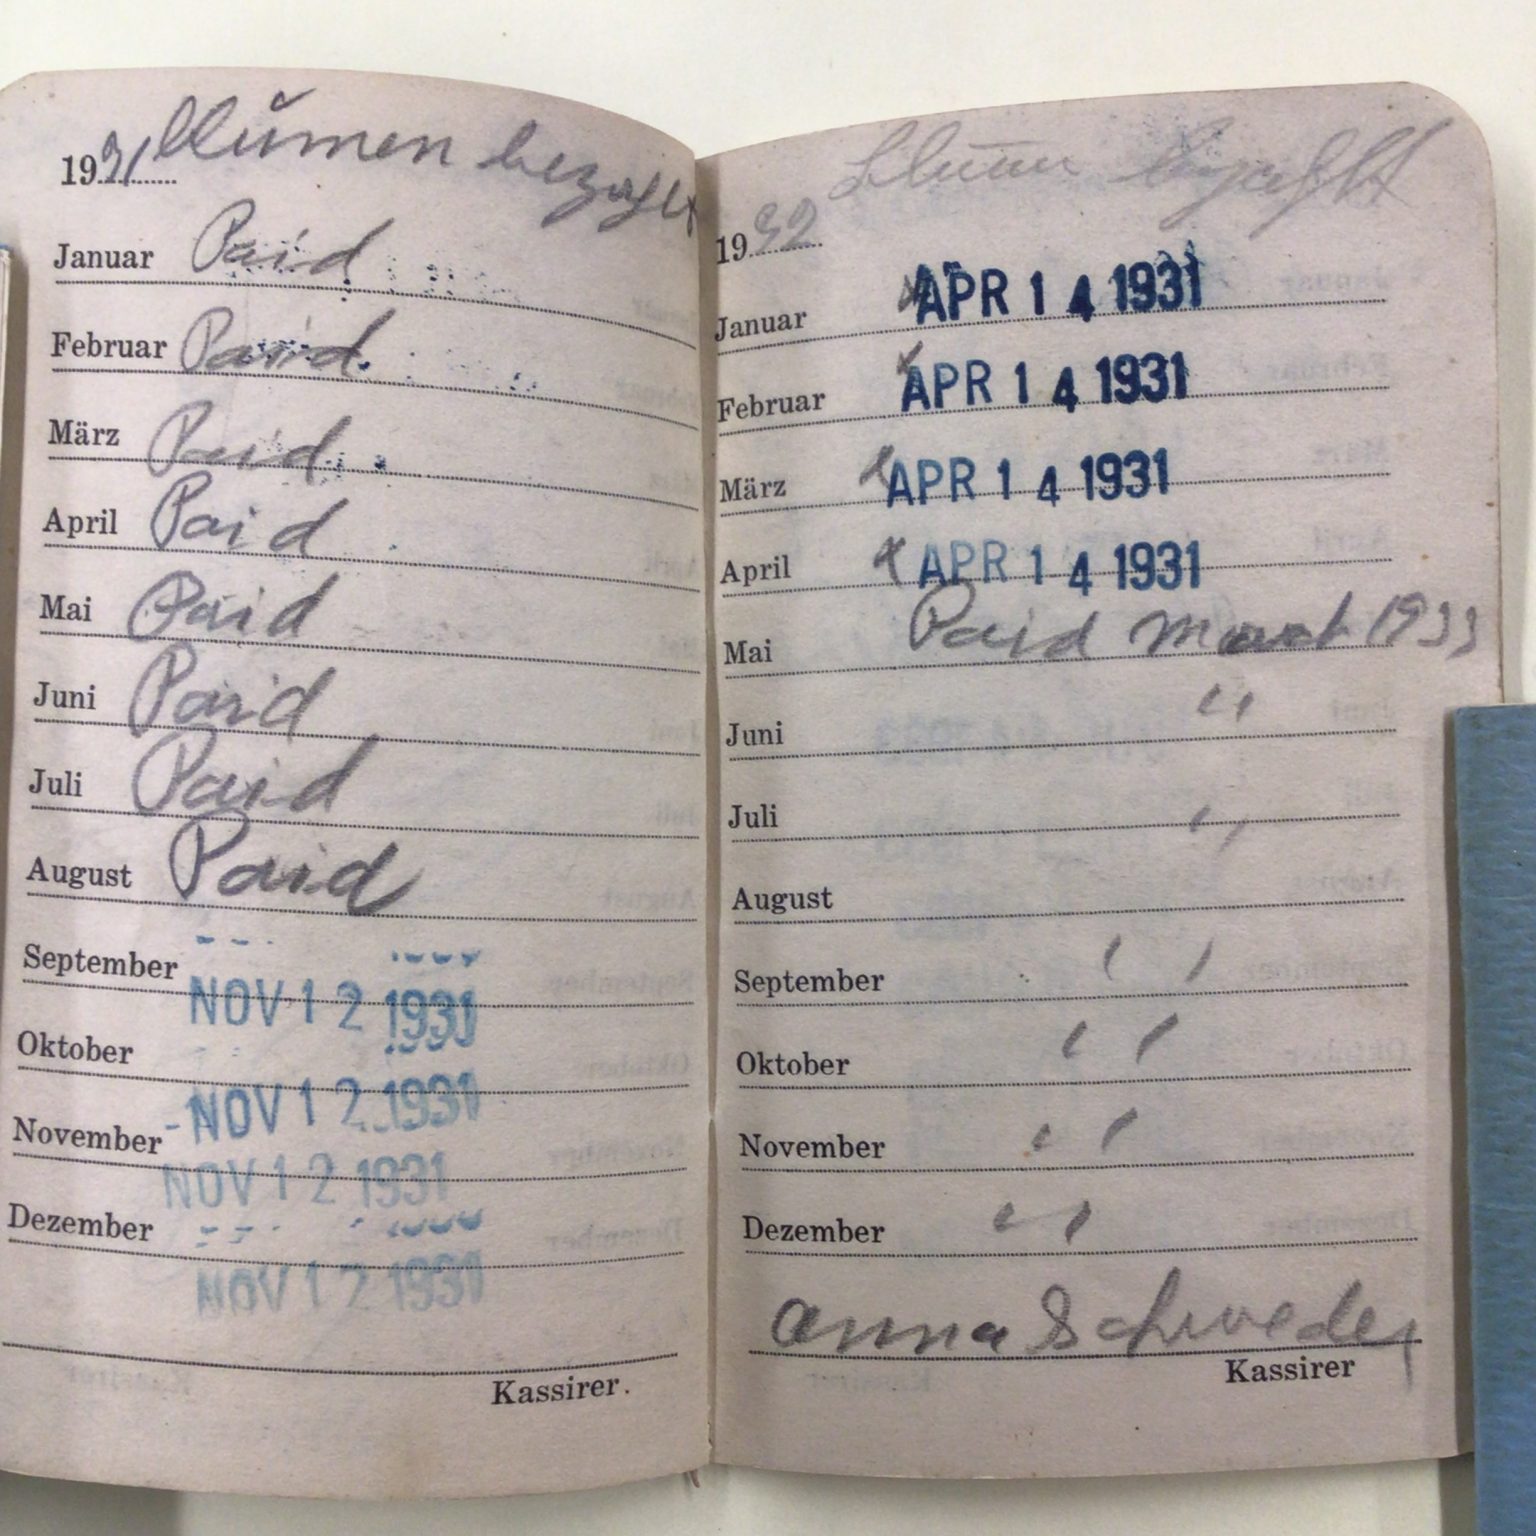 1931 Blumen bezahlt
Januar Paid
Februar Paid.
März Paid.
April Paid
Mai Paid
Juni Paid
Juli Paid
August Paid
September NOV 12 1931
Oktober
-NOV 12 1931
November
NOV 12 1931
Dezember
NOV 12 1931
Kassirer.
Blumen bezahlt
1932
Januar x APR 14 1931
Februar x APR 14 1931
März x APR 14 1931
April x APR 14 1931
Mai Paid March 1933
Juni "
Juli "
August
September "
Oktober "
November "
Dezember "
Anna Schweder
Kassirer